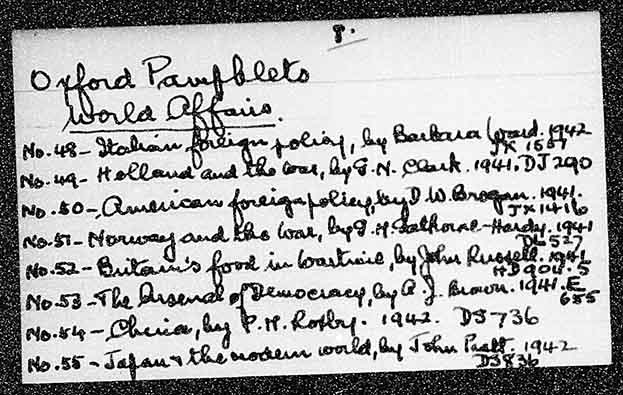 8.
Oxford Pamphlets
World Affairs.
No.48- Italian foreign policy, by Barbara Ward. 1942
JX 1557
No.49- Holland and the War, by G. N. Clark. 1941. DJ 290
No.50- American foreign policy, by D. W. Brogan. 1941.
JX 1416
No.51- Norway and the War, by G. M. Gathorne-Hardy. 1941
DL 527
No.52- Britain's food in Wartime, by John Russell. 1941
HD 9011.5
No.53- The Arsenal of Democracy, by A. J. Brown. 1941. E
655
No.54- China, by P. M. Roxby. 1942. DS 736
No.55- Japan & the modern world, by John Pratt. 1942
DS 836